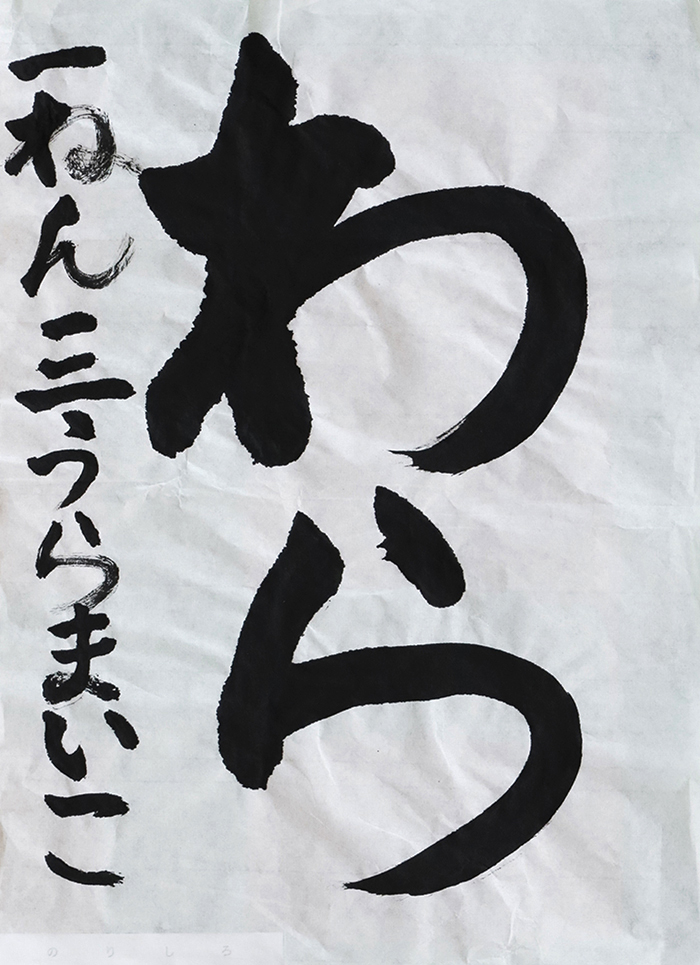 わら
一ねん三うらまいこ
のりしろ